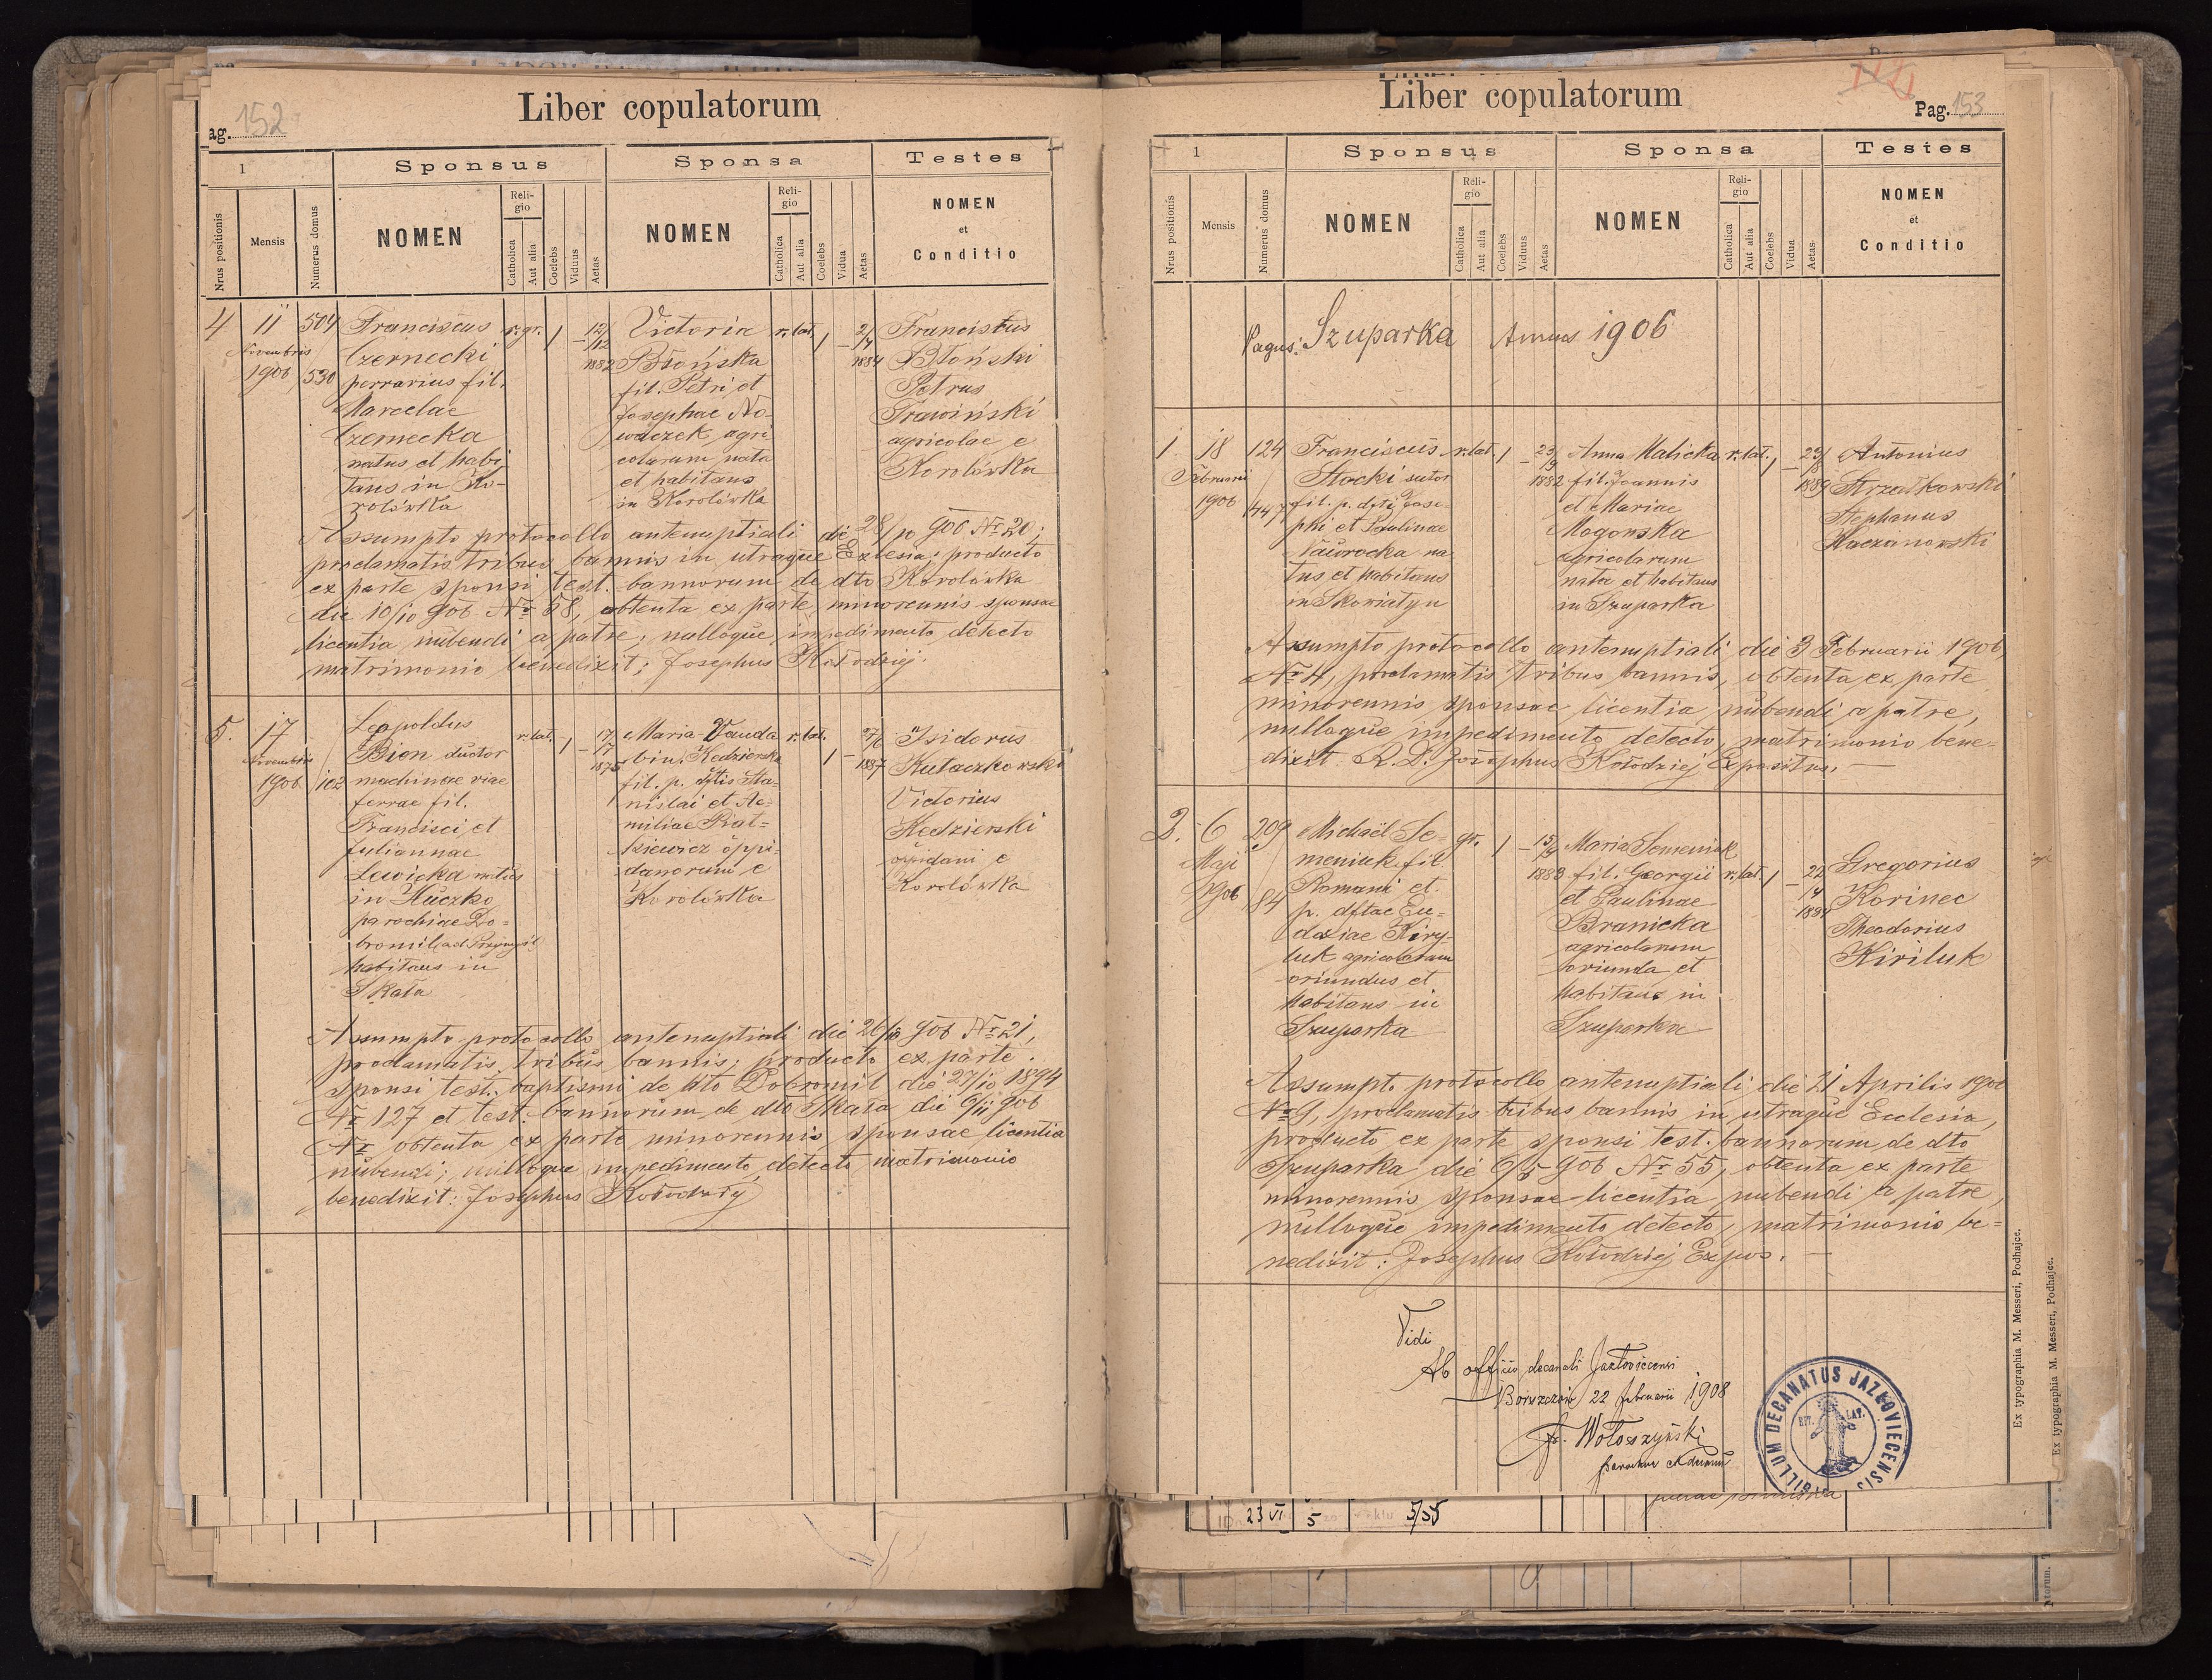 Liber copulatorum
ag. 152
1
Sponsus
Sponsa
Testes
Nrus positionis
Mensis
Numerus domus
NOMEN
Religio
Catholica
Aut alia
Coelebs
Viduus
Aetas
NOMEN
Religio
Catholica
Aut alia
Coelebs
Vidua
Aetas
NOMEN
et
Conditio
4
11
Novembris
1906
504
530
Franciscus
Czernecki
ferrarius fil.
Marcelae
Czernecka
natus et habi
tans in Ko-
rolówka
r. gr.
1
12/12
1882
Victoria
Błońska
fil. Petri et
Josephae No-
waczek agri
colarum nata
et habitans
in Korolówka
r. lat.
1
2/4
1884
Franciscus
Błoński
Petrus
Trawiński
agricolae e
Korolówka
Assumpto protocollo antenuptiali die 28/10 906 Nr 20;
proclamatis tribus bannis in utraque Eclesia; producto
ex parte sponsi test. bannorum de dto Korolówka
die 10/10 906 Nr 58, obtenta ex parte minorennis sponsae
licentia nubendi a patre, nulloque impedimento detecto
matrimonio benedixit; Josephus Kołodziej.
5.
17
Novembris
1906
102
Leopoldus
Bien ductor
machinae viae
ferrae fil.
Francisci et
Juliannae
Lewicka natus
in Huczko
parochiae Do-
bromil ad Przemyśl
habitans in
Skała
r. lat.
1
17/7
1875
Maria Vanda
bin. Kędzierska
fil. p. dftis Sta-
nislai et Ae-
miliae Piat-
kiewicz oppi-
danorum e
Korolówka
r. lat.
1
27/6
1887
Isidorus
Kułaczkowski
Victorius
Kędzierski
oppidani e
Korolówka
Assumpto protocollo antenuptiali die 26/10 906 Nr 21,
proclamatis tribus bannis; producto ex parte
sponsi test. baptismi de dto Dobromil die 27/10 1894
Nr 127 et test. bannorum de dto Skała die 6/11 906
Nr obtenta ex parte minorennis sponsae licentia
nubendi; nulloque impedimento detecto matrimonio
benedixit: Josephus Kołodziej
Liber copulatorum
Pag. 153
1
Sponsus
Sponsa
Testes
Nrus positionis
Mensis
Numerus domus
NOMEN
Religio
Catholica
Aut alia
Coelebs
Viduus
Aetas
NOMEN
Religio
Catholica
Aut alia
Coelebs
Vidua
Aetas
NOMEN
et
Conditio
Pagus: Szuparka Annus 1906
1
18
Februarii
1906
124
147
Franciscus
Stocki sutor
fil. p. dfti Jose-
phi et Paulinae
Nawrocka na
tus et habitans
in Skowiatyn
r. lat.
1
23/9
1882
Anna Malicka
fil. Joannis
et Mariae
Mogonska
agricolarum
nata et habitans
in Szuparka
r. lat.
1
23/8
1889
Antonius
Strzałkowski
Stephanus
Kaczanowski
Assumpto protocollo antenuptiali die 3 Februarii 1906
Nr 4, proclamatis tribus bannis, obtenta ex parte
minorennis sponsae licentia nubendi a patre,
nulloque impedimento detecto, matrimonio bene-
dixit R. D. Josephus Kołodziej Expositus.
2.
6
Maji
1906
209
84
Michaël Se-
meniuk fil
Romani et
p. dftae Eu-
doxiae Kiry-
luk agricolarum
oriundus et
habitans in
Szuparka
gr.
1
15/9
1883
Maria Semeniuk
fil. Georgii
et Paulinae
Branicka
agricolarum
oriunda et
habitans in
Szuparka
r. lat.
1
22
4
Gregorius
Korinec
Theodorius
Kiriluk
Assumpto protocollo antenuptiali die 21 Aprilis 1906
Nr 9, proclamatis tribus bannis in utraque Ecclesia,
producto ex parte sponsi test. bannorum de dto
Szuparka die 6/5 906 Nr 55, obtenta ex parte
minorennis sponsae licentia nubendi a patre,
nulloque impedimento detecto, matrimonio be-
nedixit: Josephus Kołodziej Expos.
Vidi
Ab officio decanali Jazłoviecensi
22 februarii 1908
Wołoszyński
SIGILLUM DECANATUS JAZŁOVIECENSIS
RIT. LAT.
Ex typographia M. Messeri, Podhajce.
Ex typographia M. Messeri, Podhajce.
23 VI
5
5/55